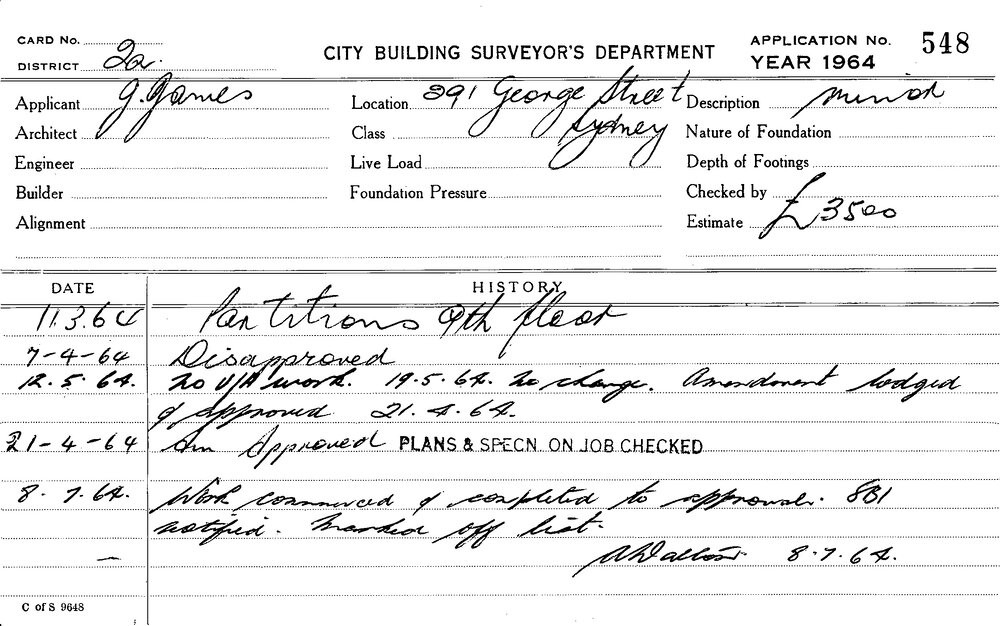 CARD No.
DISTRICT 2a.
CITY BUILDING SURVEYOR'S DEPARTMENT
APPLICATION No. 548
YEAR 1964
Applicant J. James
Location 391 George Street
Sydney
Description minor
Architect
Class
Nature of Foundation
Engineer
Live Load
Depth of Footings
Builder
Foundation Pressure
Checked by
Alignment
Estimate £3500
DATE HISTORY
11.3.64 Partitions 9th floor
7-4-64 Disapproved
12.5.64. No U/A work. 19.5.64. No change. Amendment lodged
& approved 21.4.64.
21-4-64 Am Approved PLANS & SPECN. ON JOB CHECKED
8.7.64. Work commenced & completed to approval.
notified. Marked off list.
8.7.64.
—
C of S 9648